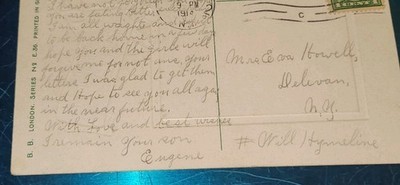 I have not forgotten
you are
I am all
to be back home in a few days
hope you and the girls will
forgive me for not
letters I was glad to get them
and Hope to see you all again
in the near future.
With Love and best wishes
I remain Your son
Eugene
PRINTED IN
B. B. LONDON. SERIES No E.86.
9- PM
191
C
CENT
Mrs Eva Howell,
Delevan,
N.Y.